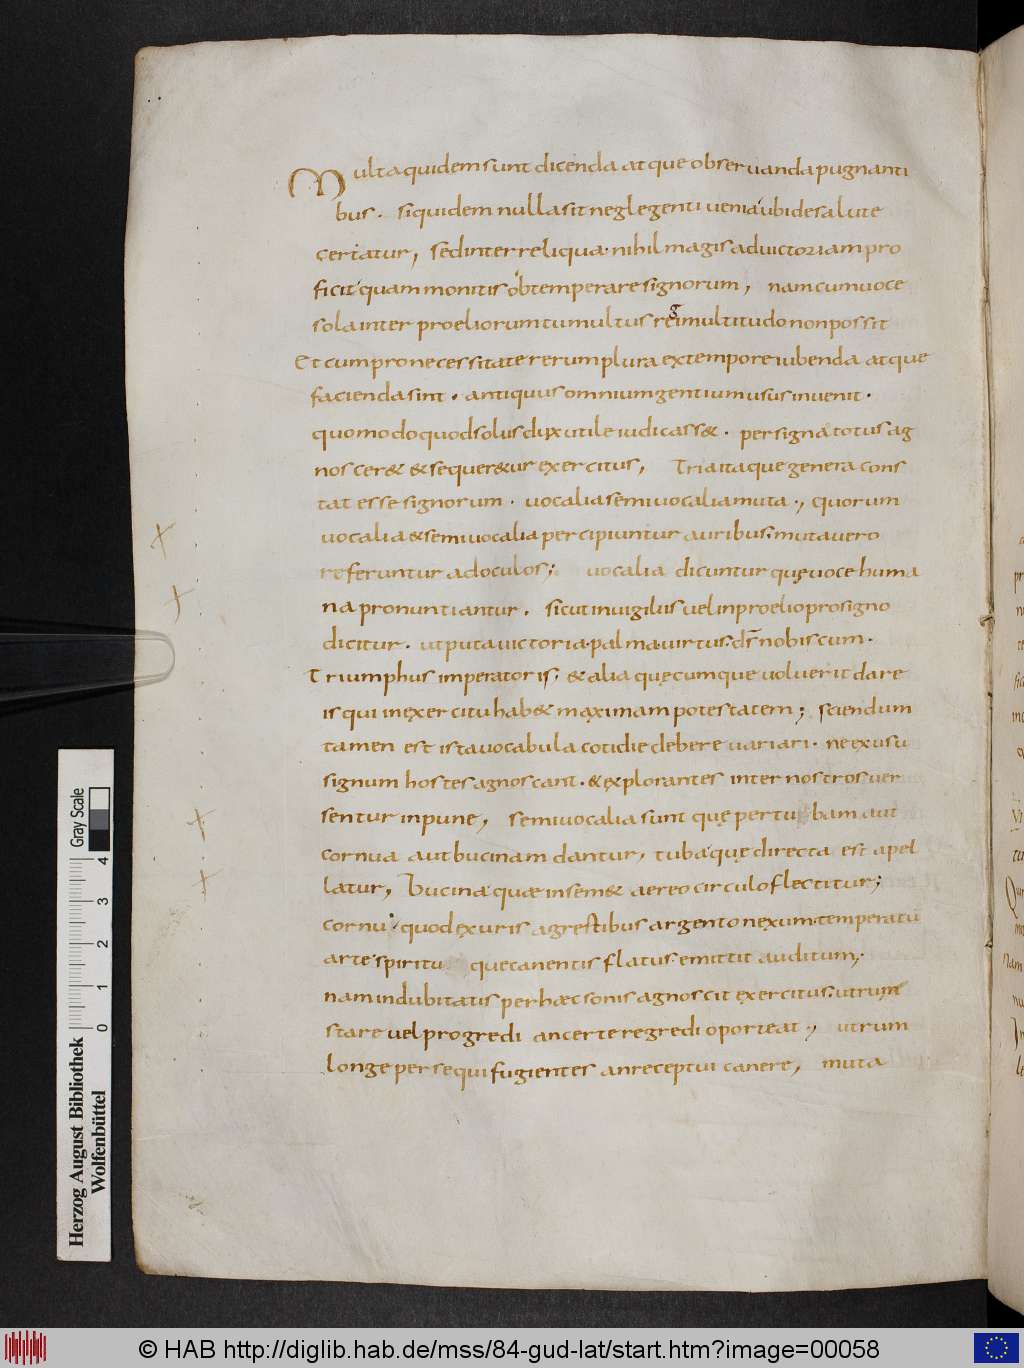 Multa quidem sunt dicenda atque obseruanda pugnanti
bus. siquidem nulla sit neglegenti uenia ubi de salute
certatur, sed inter reliqua. nihil magis ad uictoriam pro
ficit quam monitis obtemperare signorum, nam cum uoce
sola inter proeliorum tumultus regi multitudo non possit
Et cum pro necessitate rerum plura ex tempore iubenda atque
facienda sint. antiquus omnium gentium usus inuenit.
quomodo quod solus dux utile iudicass&. per signa totus ag
noscer& & sequer&ur exercitus, Tria itaque genera cons
tat esse signorum. uocalia semiuocalia muta., quorum
uocalia & semiuocalia percipiuntur auribus. muta uero
referuntur ad oculos; uocalia dicuntur quę uoce huma
na pronuntiantur. sicut in uigiliis uel in proelio pro signo
dicitur. ut puta uictoria. palma. uirtus. d̅s nobiscum.
Triumphus imperatoris; & alia quęcumque uoluerit dare
is qui in exercitu hab& maximam potestatem; sciendum
tamen est ista uocabula cotidie debere uariari. ne ex usu
signum hostes agnoscant. & explorantes inter nostros uer
sentur inpune, semiuocalia sunt quę per tu bam aut
cornua aut bucinam dantur, tuba quę directa est apel
latur, bucina quae in sem& aereo circulo flectitur;
cornu. quod ex uris agrestibus argento nexum. temperatū
arte spiritu que canentis flatus. emittit auditum,.
nam indubitatis per haec sonis agnoscit exercitus. utrum
stare uel progredi an certe regredi oporteat., utrum
longe persequi fugientes an receptui canere, muta
Herzog August Bibliothek
Wolfenbüttel
0 1 2 3 4
Gray Scale
© HAB http://diglib.hab.de/mss/84-gud-lat/start.htm?image=00058